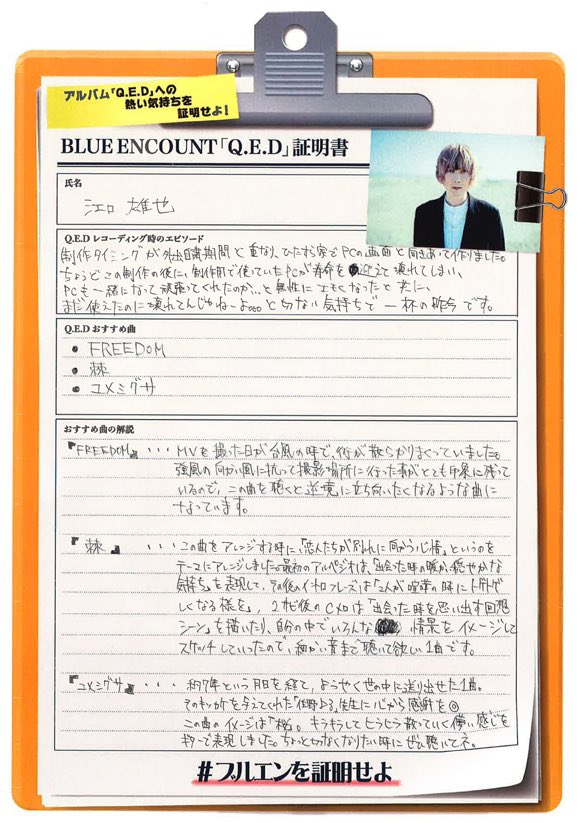 アルバム「Q.E.D」への
熱い気持ちを
証明せよ!
BLUE ENCOUNT「Q.E.D」証明書
氏名
江口 雄也
Q.E.D レコーディング時のエピソード
制作タイミングが外出自粛期間と重なり、ひたすら家でPCの画面と向きあって作りました。
ちょうどこの制作の後に、制作用で使っていたPCが寿命を迎えて壊れてしまい、
PCも一緒になって頑張ってくれたのか…と無性にエモくなったと共に、
まだ使えたのに壊れてんじゃねーよ。。。と切ない気持ちで一杯の昨今です。
Q.E.D おすすめ曲
• FREEDOM
• 棘
• ユメミグサ
おすすめ曲の解説
『FREEDOM』・・・MVを撮った日が台風の時で、街が散らかりまくっていました。
強風の向かい風に抗って撮影場所に行った事がとても印象に残って
いるので、この曲を聴くと逆境に立ち向いたくなるような曲に
なっています。
『棘』・・・この曲をアレンジする時に、「恋人たちが別れに向かう心情」というのを
テーマにアレンジしました。最初のアルペジオは、「出会った時の暖かく穏やかな
気持ち」を表現して、その後のイントロフレーズは「2人が喧嘩の時にトゲトゲ
しくなる様を」、2サビ後のCメロは「出会った時を思い出す回想
シーン」を描いたり、自分の中でいろんな 情景をイメージして
スケッチしていったので、細かい音まで聴いて欲しい1曲です。
『ユメミグサ』・・・約7年という月日を経て、ようやく世の中に送り出せた1曲。
そのキッカケを与えてくれた「住野よる」先生に心から感謝を◎
この曲のイメージは「桜」。キラキラしてヒラヒラ散っていく儚い感じを
ギターで表現しました。ちょっと切なくなりたい時にぜひ聴いてネ。
#ブルエンを証明せよ